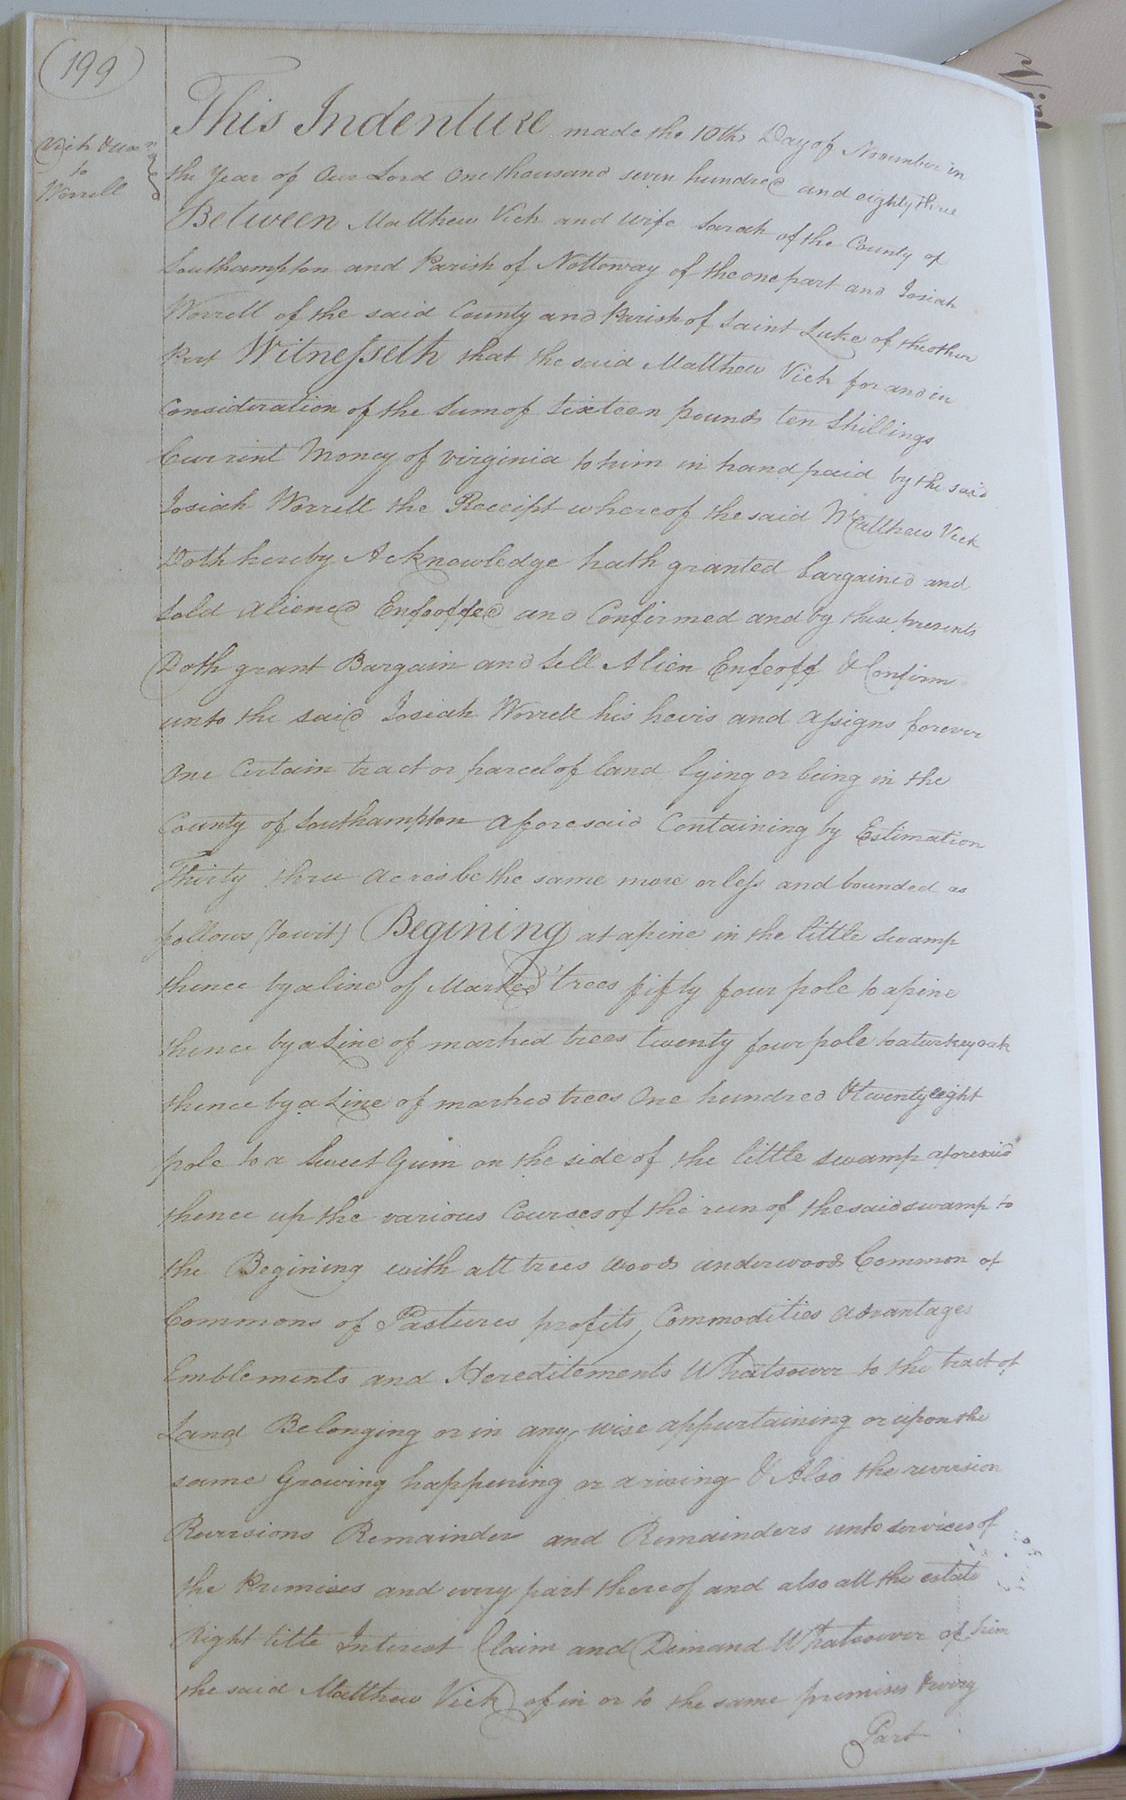 (199)
Vick &
to
Worrell
This Indenture made the 10th Day of November in
the Year of Our Lord One thousand seven hundred and eighty three
Between Matthew Vick and wife Sarah of the County of
Southampton and Parish of Nottoway of the one part and Josiah
Worrell of the said County and Parish of Saint Luke of the other
Part Witnesseth that the said Matthew Vick for and in
Consideration of the Sum of Sixteen pounds ten Shillings
Current Money of Virginia to him in hand paid by the said
Josiah Worrell the Receipt whereof the said Matthew Vick
Doth hereby Acknowledge hath granted bargained and
Sold aliened Enfeoffed and Confirmed and by these presents
Doth grant Bargain and Sell Alien Enfeoff & Confirm
unto the said Josiah Worrell his heirs and assigns forever
One Certain tract or parcel of land lying or being in the
County of Southampton aforesaid Containing by Estimation
Thirty three acres be the same more or less and bounded as
follows (to wit) Begining at a pine in the little swamp
thence by a line of Marked trees fifty four pole to a pine
thence by a Line of marked trees twenty four pole to a turkey oak
thence by a Line of marked trees One hundred & twenty eight
pole to a Sweet Gum on the side of the little swamp aforesaid
thence up the various Courses of the run of the said swamp to
the Begining with all trees woods underwoods Common of
Commons of Pastures profits Commodities advantages
Emblements and Hereditements Whatsoever to the tract of
Land Belonging or in any wise appurtaining or upon the
same Growing happening or arising & Also the reversion
Reversions Remainder and Remainders unto services of
the Premises and every part thereof and also all the estate
Right title Interest Claim and Demand Whatsoever of him
the said Matthew Vick of in or to the same premises & every
Part